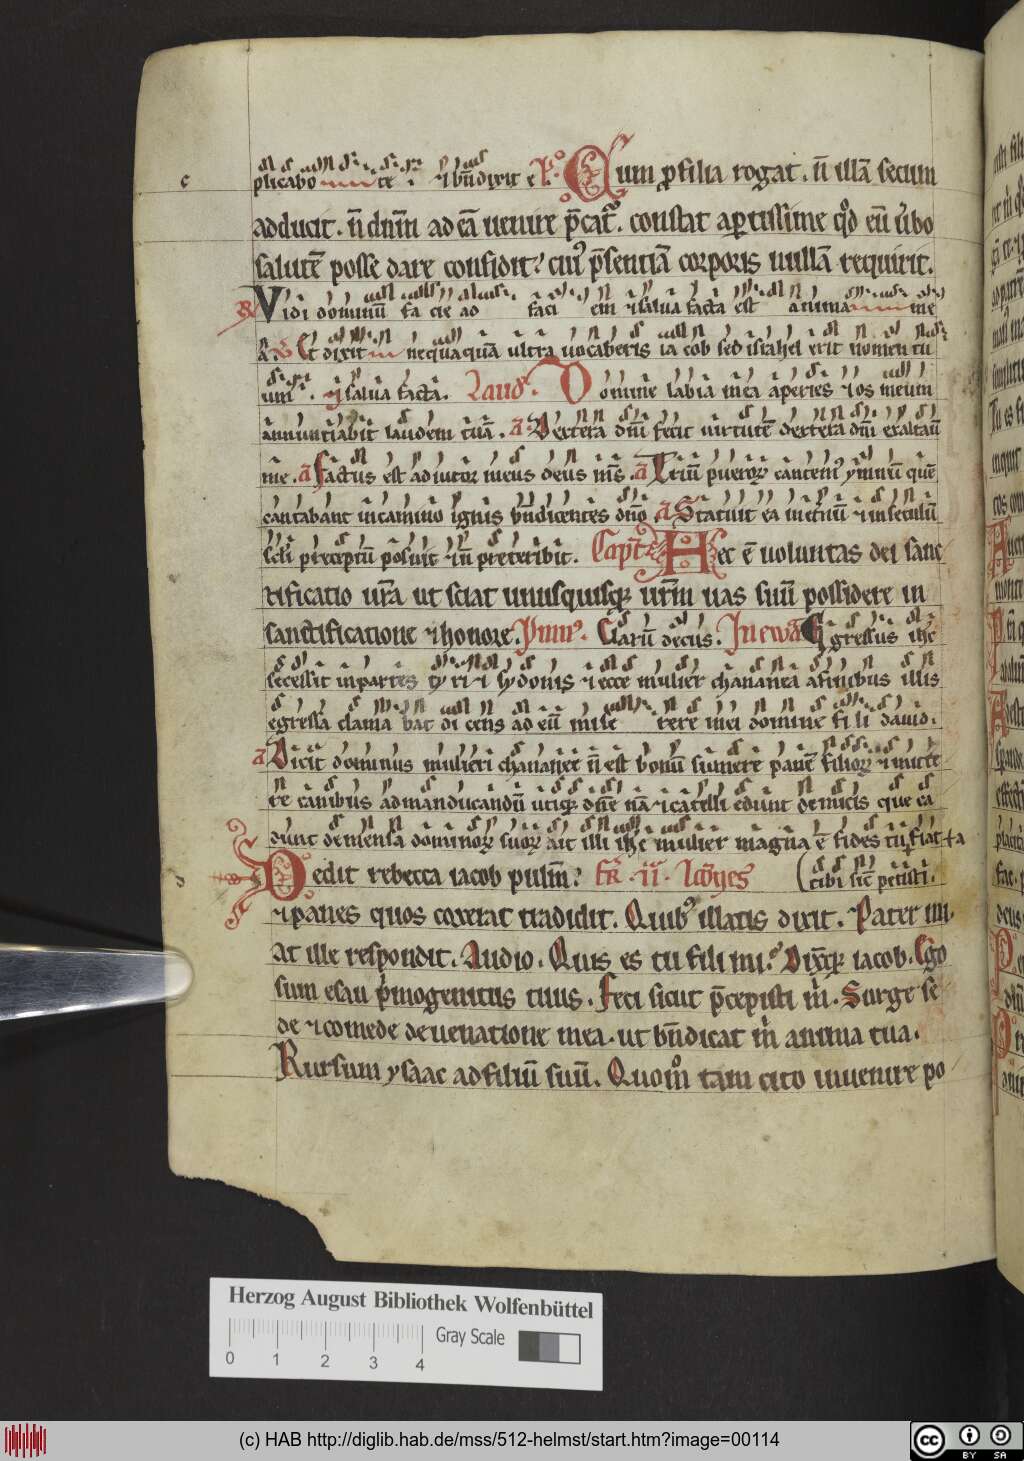 c
plicabo te ⁊ bn̄dixit e Cum p̱ filia rogat. n̄ illā secum
adducit. n̄ dn̄m ad eā uenire p̄cat᷑. constat ap̱tissime qd̊ eū u̇bo
salutē posse dare confidit? cui᷒ p̄sentiā corporis nullā requirit.
Vidi dominū fa cie ad faci em ⁊ salua facta est anima me
a. V Et dixit nequaquā ultra uocaberis ia cob sed israhel erit nomen tu
um. ⁊ salua facta. Laud᷑. Domine labia mea aperies ⁊ os meum
annuntiabit laudem tuā. a Dextera dn̄i fecit uirtutē dextera dn̄i exaltauit
me. a Factus est adiutor meus deus m̄s. a Triū pueroꝝ cantem᷒ ymnū quē
cantabant in camino ignis bn̄dicentes dn̄o a Statuit ea in et̄nū ⁊ in seculū
scl̄i preceptū posuit ⁊ n̄ preteribit. Capit᷑ Hec ē uoluntas dei sanc
tificatio ur̄a ut sciat unusquisqꝫ ur̄m uas suū possidere in
sanctificatione ⁊ honore. Ymn᷒. Clarū decus. In ewā Egressus ih̄c
secessit in partes ty ri ⁊ sydonis ⁊ ecce mulier chananea a finibus illis
egressa clama bat di cens ad eū mise rere mei domine fi li dauid.
a Dicit dominus mulieri chananee n̄ est bonū sumere panē filioꝝ ⁊ mitte
re canibus ad manducandū utiqꝫ dn̄e nā ⁊ catelli edunt de micis que ca
dunt de mensa dominoꝝ suoꝝ ait illi ih̄c mulier magna ē fides tua fiat
Dedit rebecca iacob pulm̄? tibi sic̄ petisti.
⁊ panes quos coxerat tradidit. Quib᷒ illatis dixit. Pater mi.
At ille respondit. Audio. Quis es tu fili mi? Dixitqꝫ iacob. Ego
sum esau ṗmogenitus tuus. Feci sicut p̄cepisti ṁ. Surge se
de ⁊ comede de uenatione mea. ut bn̄dicat ṁ anima tua.
Rursum ysaac ad filiū suū. Quom̊ tam cito inuenire po
Herzog August Bibliothek Wolfenbüttel
0 1 2 3 4 Gray Scale
(c) HAB http://diglib.hab.de/mss/512-helmst/start.htm?image=00114
cc BY SA